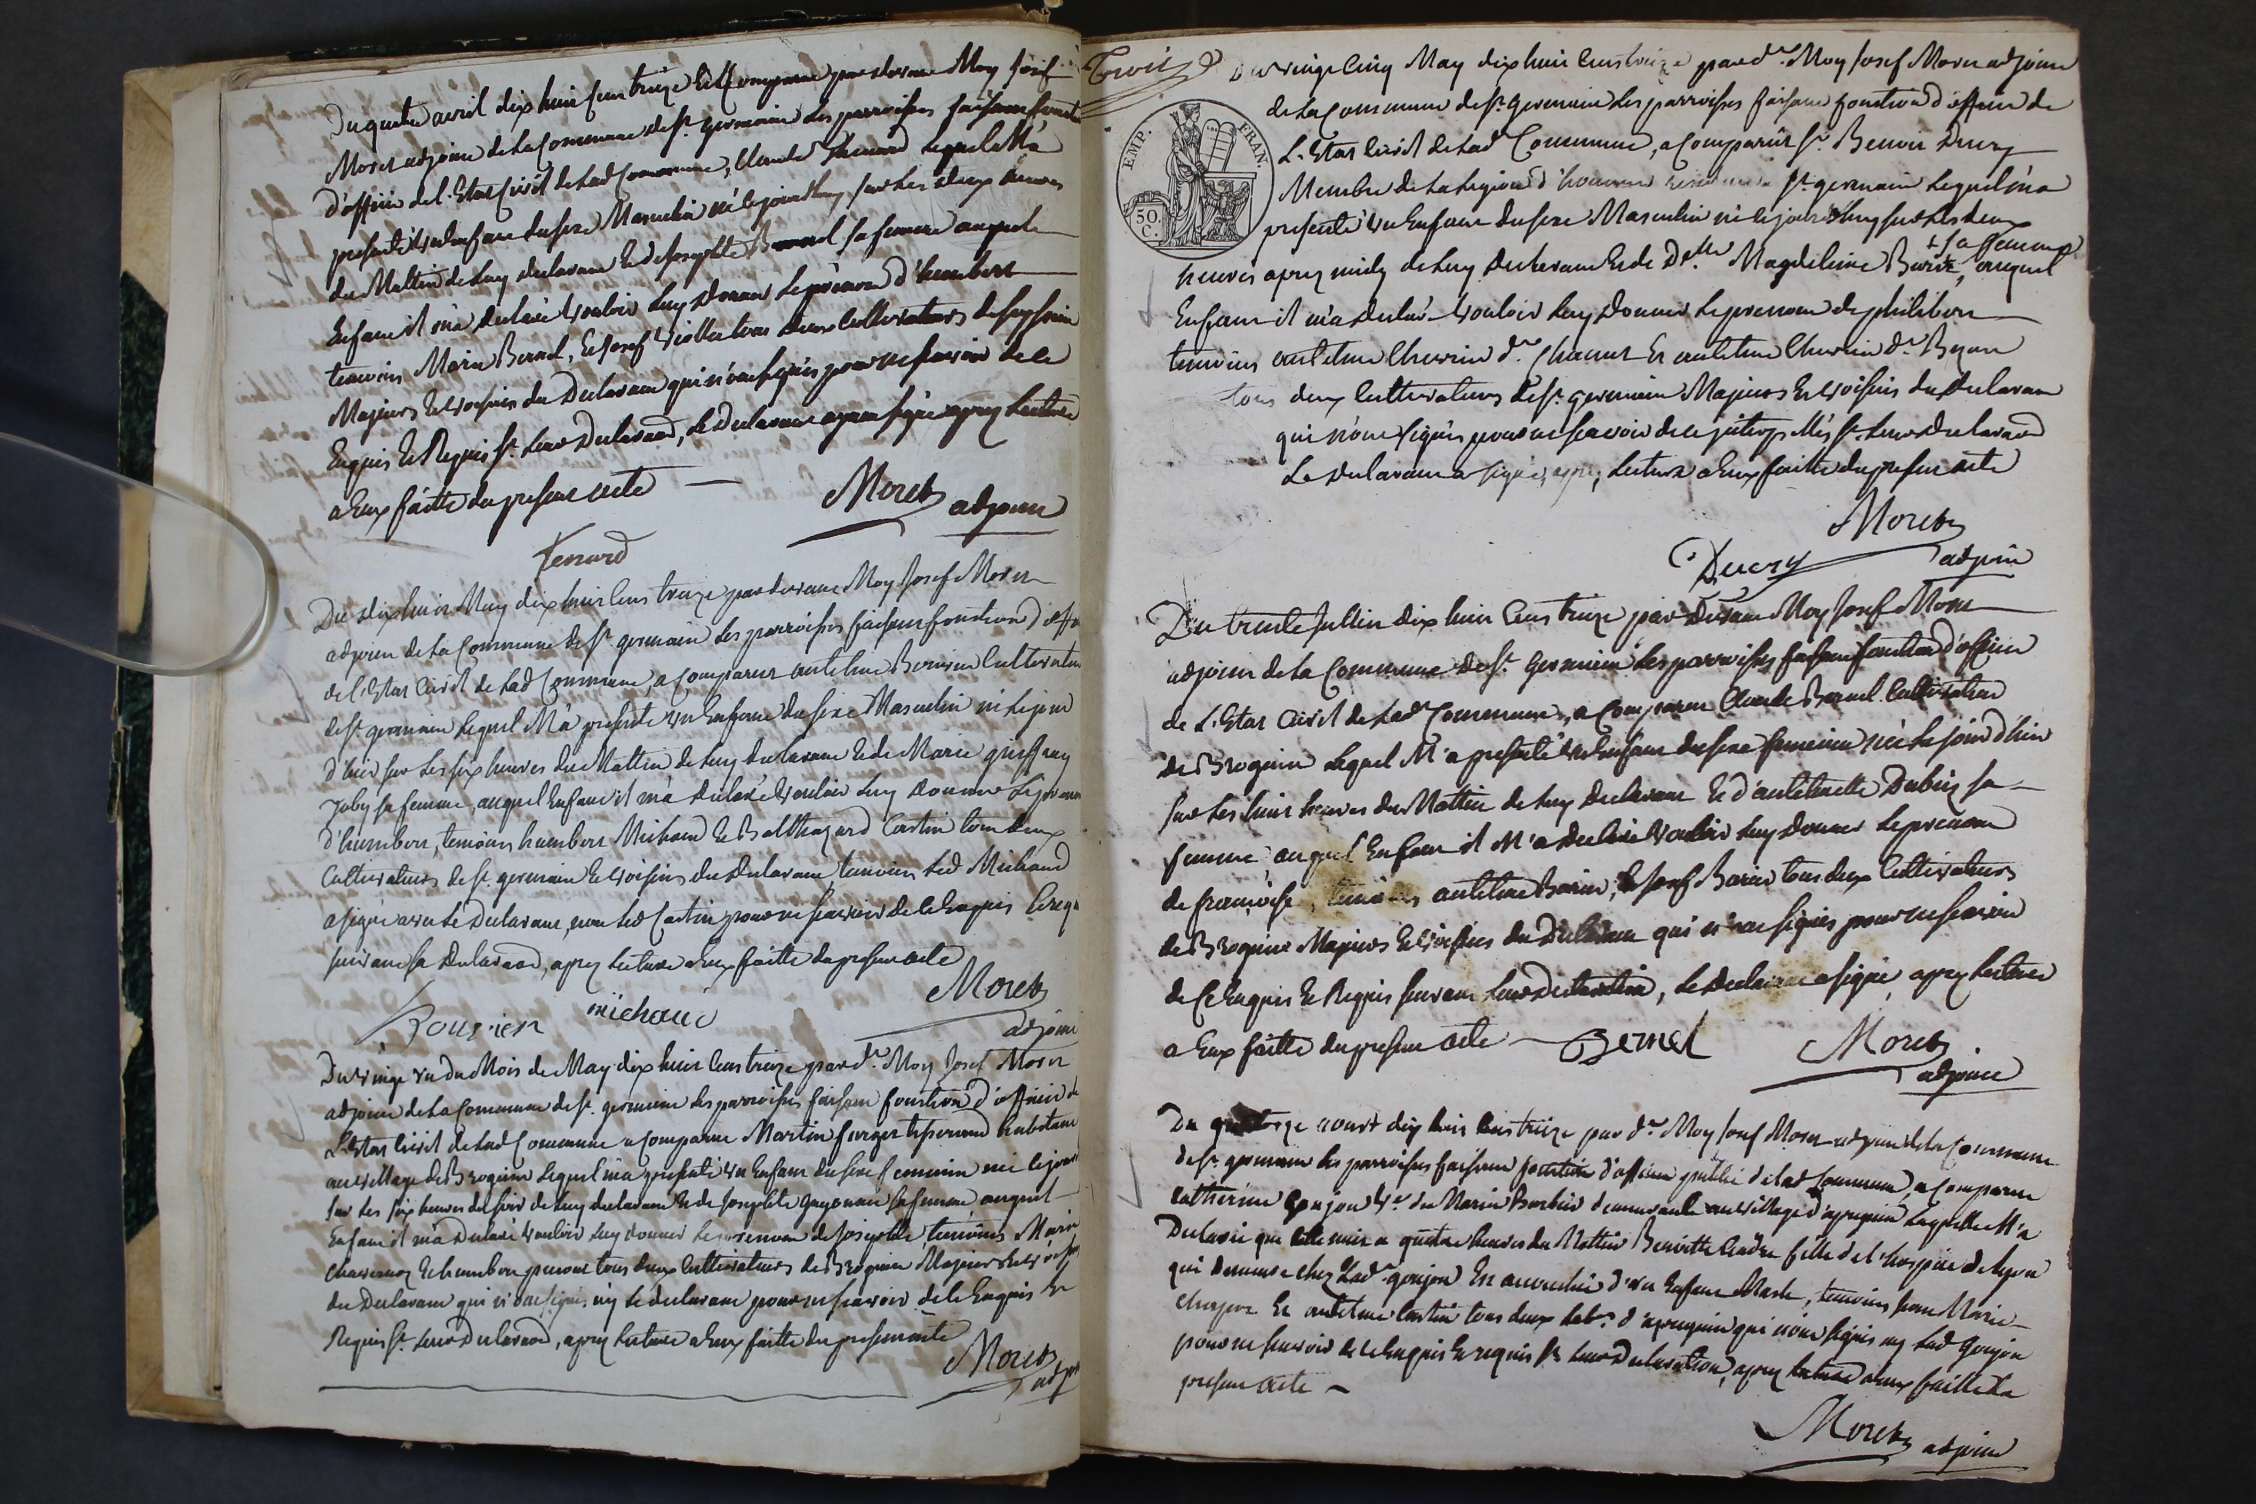 Du quatre avril dix huit cent treize Est Comparu par devant Moy Josef
Moret adjoint de la Commune de St. Germain les parroisses faisant fonction
d'officier de l'Etat Civil de lad Commune, Claude Fenard lequel M'a
presenté un Enfant du sexe Masculin né le jourd'huy sur les deux heures
du Mattin de luy declarant et de Josephte Bernel sa femme auquel
Enfant il m'a declaré vouloir luy donner le prénom d'humbert
temoins Marin Bernel, et Josef tous deux Cultivateurs de
Majeurs et voisins du Declarant qui n'ont signés pour ne savoir de ce
Enquis et Requis St. leur Declaraon, le Declarant ayant signé apres lecture
a Eux faitte du present acte — Moret adjoint
Fenard
Du dix huit May dix huit Cent treize par devant Moy Josef Moret
adjoint de la Commune de St. germain les parroisses faisant fonction d'offi
de l'Etat Civil de lad Commune, a Comparut antelme Cultivateur
de St. germain lequel M'a presenté un Enfant du sexe Masculin né le jour
d'hier sur les six heures du Mattin de luy Declarant et de Marie
Joly sa femme, auquel Enfant il m'a declaré vouloir luy donner le prenom
d'humbert, temoins humbert Michaud et Balthazard Cartin tous deux
Cultivateurs de St. germain et voisins du Declarant temoins led Michaud
a signé avec le Declarant, non led Cartin pour ne scavoir de ce Enquis et req
suivant sa Declaraon, apres lecture a Eux faitte du present acte
michaud Moret
adjoint
Du vingt un du Mois de May dix huit Cent treize pard.t Moy Josef Moret
adjoint de la Commune de St. germain les parroisses faisant fonction d'officier de
L'Etat Civil de lad Commune a Comparu Martin habitant
au village de Brognin lequel m'a presenté un Enfant du sexe feminin né le jour
sur les six heures du soir de luy declarant et de Josephte sa femme auquel
Enfant il m'a Declaré vouloir luy donner le prenom de Josephte, temoins Marin
et humbert tous deux Cultivateurs de Brognin Majeurs et voisins
du Declarant qui n'ont signés ny le declarant pour ne scavoir de ce Enquis et
Requis St. leur Declaraon, apres lecture a Eux faitte du present acte
Moret
adjt
Trois
Du vingt Cinq May dix huit Cent treize pard.t Moy Josef Moret adjoint
de la Commune de St. Germain les parroisses faisant fonction d'officier de
L'Etat Civil de lad Commune, a Comparut Sr. Benoit Ducry
Membre de la Legion d'honneur St. germain lequel m'a
presenté un Enfant du sexe Masculin né le jourd'huy sur les deux
heures apres midy de luy Declarant et de Delle Magdeleine + sa femme, auquel
Enfant il m'a declaré vouloir luy Donner le prenom de philibert
temoins antelme Chevrier dt. Charnet Et antelme Chevrier dt.
tous deux Cultivateurs de St. germain Majeurs Et voisins du Declarant
qui n'ont signés pour ne scavoir de ce St. leur Declaraon
Le Declarant a signé, apres lecture a Eux faitte du present acte
Moret
Ducry adjoint
EMP. FRAN.
50. C.
Du trente Juillet dix huit Cent treize par devant Moy Josef Moret
adjoint de la Commune de St. Germain les parroisses faisant fonction d'officier
de L'Etat Civil de lad. Commune, a Comparu Claude Bernel Cultivateur
de Brognin lequel M'a presenté un Enfant du sexe feminin née le jour d'hier
sur les huit heures du Mattin de luy Declarant et d'antelmette Dubuis sa
femme, auquel Enfant il M'a Declaré vouloir luy Donner le prenom
de françoise, temoins antelme , et Josef tous deux Cultivateurs
de Brognin Majeurs et voisins du Declarant qui n'ont signés pour ne scavoir
de Ce Enquis et Requis suivant leur Declaration, le Declarant a signé apres lecture
a Eux faitte du present acte — Bernel Moret
adjoint
Du quatorze aoust dix huit Cent treize par dt. Moy Josef Moret adjoint de la Commune
de St. germain les parroisses faisant fonction d'officier public de lad Commune, a Comparu
Catherine goujon Ve. du Marin Barbier demeurante au village d'apregnin laquelle M'a
Declaré que Cette nuit a quatre heures du Mattin Benoitte fille de l'hospice de lyon
qui demeure chez Lad. goujon Est accouchée d'un Enfant Masle, temoins Jean Marie
Et antelme Cartin tous deux labr. d'apregnin qui n'ont signés ny lad Goujon
pour ne scavoir de ce Enquis et requis St. leur Declaration, apres lecture a Eux faitte du
present acte —
Moret adjoint